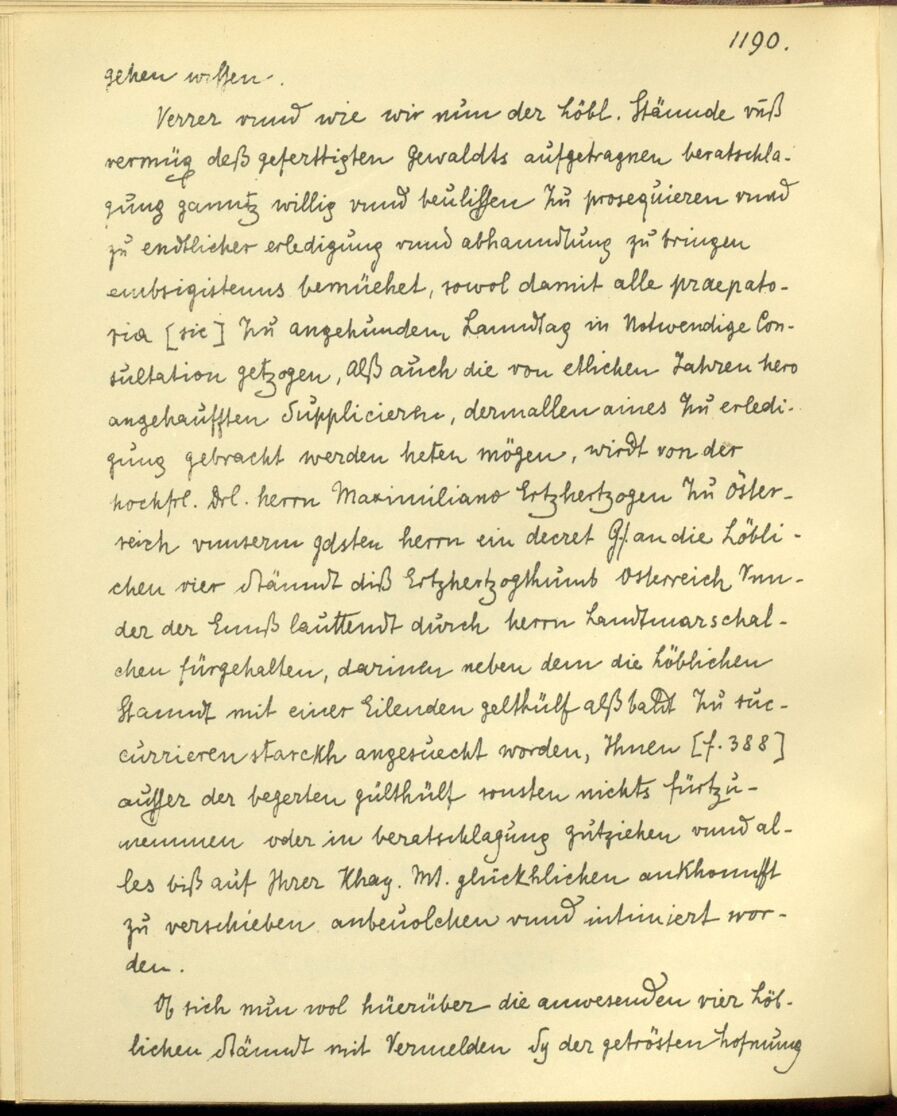 1190.
gehen wissen.
Verrer vnnd wie wir nun der Löbl. Stännde vnß
vermüg deß geferttigten Gewaldts aufgetragnen beratschla-
gung ganntz willig vnnd beulissen Zu prosequieren vnnd
zu endtlicher erledigung vnnd abhanndlung zu bringen
embsigistenns bemüehet, sowol damit alle praepato-
ria [sic] Zu angehunden Lanndtag in Notwendige Con-
sultation getzogen, Alß auch die von etlichen Jahren hero
angehaufften Supplicieren, dermallen aines Zu erledi-
gung gebracht werden heten mögen, wirdt von der
hochfrl. Drl. herrn Maximiliano Ertzhertzogen Zu Öster-
reich vnnserm gdsten herrn ein decret an die Löbli-
chen vier Stänndt diß Ertzhertzogthumb Osterreich Vnn-
der der Ennß lauttendt durch herrn Landtmarschal-
chen fürgehalten, darinen neben dem die Löblichen
Stanndt mit einer Eilenden gelthülf alßbaldt Zu suc-
currieren starckh angesuecht worden, Ihnen [f. 388]
ausser der begerten gülthülf sonsten nichts fürtzu-
nemmen oder in beratschlagung zutziehen vnnd al-
les biß auf Ihrer Khay. Mt. glückhlichen ankhonnfft
zu verschieben anbeuolchen vnnd intimiert wor-
den.
Ob sich nun wol hüerüber die anwesenden vier Löb-
lichen Stänndt mit Vermelden Sy der getrösten hofnung